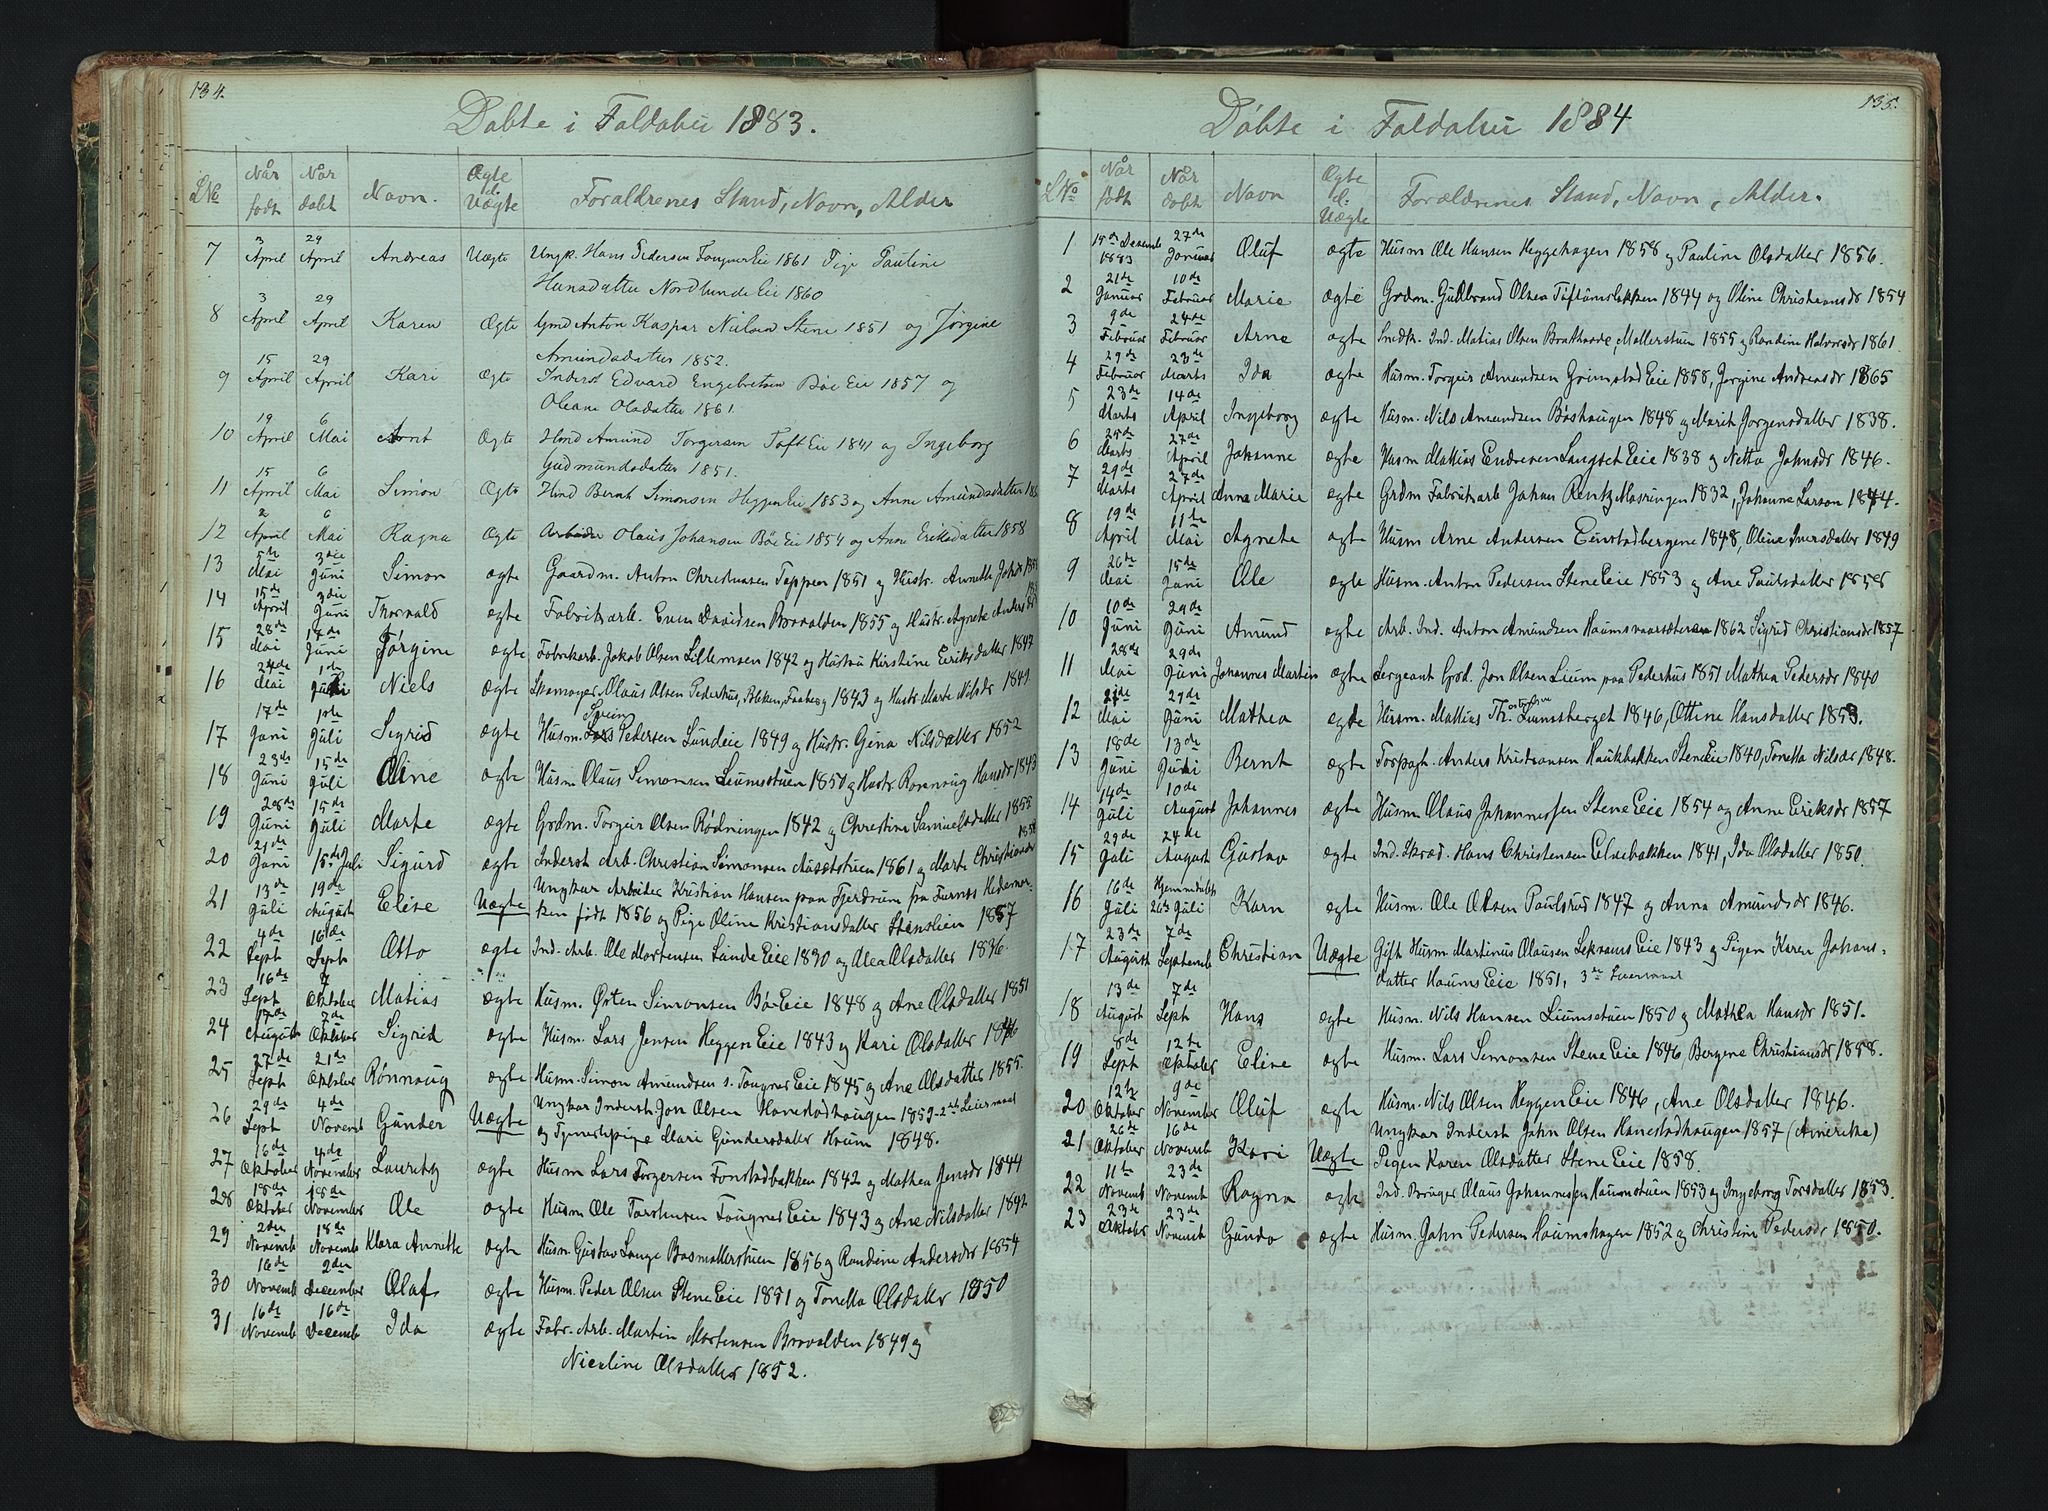 134.
Døbte i Foldahu 1883.
L№ Når født Når døbt Navn. Ægte el. Uægte Forældrenes Stand, Navn, Alder
7 3 April 29 April Andreas Uægte Ungk. Hans Pedersen Fougner Eie 1861 Pige Pauline
Hansdatter Nordlunde Eie 1860
8 3 April 29 April Karen Ægte Gmd Anton Kaspar Nielsen Stene 1851 og Jørgine
Amundsdatter 1852.
9 15 April 29 April Kari Ægte Inderst Edvard Engebretsen Bøe Eie 1857 og
Oleane Olsdatter 1861.
10 19 April 6 Mai Ægte Hmd Amund Torgersen Toft Eie 1841 og Ingeborg
Gudmundsdatter 1851.
11 15 April 6 Mai Simon Ægte Hmd Bernt Simonsen Heggen Eie 1853 og Anne Amundsdatter
12 2 April 6 Mai Ragna Ægte Arbeider Olaus Johansen Bøe Eie 1854 og Anne Eriksdatter 1858
13 5te Mai 3die Juni Simon ægte Gaardm. Anton Christiansen Teppen 1851 og Hustr. Annette
14 15de April 3die Juni Thorvald ægte Fabrikarb. Even Davidsen Brovolden 1855 og Hustr. Agnete
15 28de Mai 17de Juni Jørgine ægte Fabrikarb. Jakob Olsen Lillemoen 1842 og Hustru Kirstine Eeriksdatter 1847
16 24de Mai 1ste Juli Niels ægte Skomager Olaus Olsen Pederhus, Bleken, Faaberg 1843 og Hustr. Marte Nilsdr 1849
17 17de Juni 1ste Juli Sigrid ægte Husm. Svein Pedersen Lundeie 1849 og Hustr. Gina Nilsdatter 1852
18 23de Juni 15de Juli Oline ægte Husm Olaus Simonsen Liumstuen 1850 og Hustr. Rønnaug Hansdr 1843
19 28de Juni 15de Juli Marte ægte Grdm. Torgeir Olsen Rødningen 1842 og Christine Samuelsdatter 1855
20 21de Juni 15de Juli Sigurd ægte Inderst Arb. Christian Simonsen Aasetstuen 1861 og Marte Christiansdr 1858
21 13de Juli 19de August Elise Uægte Ungkar Arbeider Kristian Hansen paa Fjerdrum fra Furnes Hedemar-
ken født 1856 og Pige Oline Kristiansdatter Stenslien 1857
22 4de Sept 16de Sept Otto ægte Ind. Arb. Ole Mortensen Lunde Eie 1830 og Alea Olsdatter 1836.
23 16de Sept 7 Oktober Matias ægte Husm. Østen Simonsen Bø Eie 1848 og Ane Olsdatter 1851
24 17de August 7de Oktober Sigrid ægte Husm. Lars Jensen Heggen Eie 1843 og Kari Olsdatter 1846
25 27de Sept 21de Oktober Rønnaug ægte Husm. Simon Amundsen s. Fougner Eie 1845 og Ane Olsdatter 1855.
26 29de Sept 4de Novemb Gunder Uægte Ungkar Inderst Jon Olsen Hanestadhaugen 1859-2det Leiermaal
og Tjenestepige Mari Gundersdatter Houm 1848.
27 16de Oktober 4de November Lauritz ægte Husm Lars Torgersen Fonstadbakken 1842 og Mathea Jensdr 1844
28 18de Oktober 18de November Ole ægte Husm Ole Torstensen Fougner Eie 1843 og Ane Nilsdatter 1842
29 2den Novemb 18de Novemb Klara Annette ægte Husm. Gustav Lange Basmollerstuen 1856 og Randine Andersdr 1854
30 16de Novemb 2den December Olaf ægte Husm. Peder Olsen Stene Eie 1851 og Tonetta Olsdatter 1850
31 16de Novemb 16de Decemb Ida ægte Fabr. Arb. Martin Mortensen Brovolden 1849 og
Nicoline Olsdatter 1852.
135.
Døbte i Foldahu 1884
L№ Når født Når døbt Navn Ægte el. Uægte Forældrenes Stand, Navn, Alder.
1 15de Decemb 1883 27de Januar Oluf ægte Husm Ole Hansen Heggehagen 1858 og Pauline Olsdatter 1856.
2 21de Januar 10de Februar Marie ægte Grdm. Gudbrand Olsen Toftumsløkken 1844 og Oline Christiansdr 1854
3 9de Februar 24de Februar Arne ægte Snedk. Ind. Matias Olsen Bratlaade, Mollerstuen 1855 og Randine Halvorsdr 1861
4 29de Februar 23de Marts Ida ægte Husm. Torgeir Amundsen Grimstad Eie 1858, Jørgine Andreasdr 1865
5 23de Marts 14de April Ingeborg ægte Husm. Nils Amundsen Bøshaugen 1848 og Marit Jorgensdatter 1838.
6 25de Marts 27de April Johanne ægte Husm Mathias Endresen Langset Eie 1838 og Netta Johnsdr 1846.
7 29de Marts 27de April Anna Marie ægte Grdm Fabrikarb Johan Rentz Mosringen 1832, Johanne Larson 1844.
8 19de April 11te Mai Agnete ægte Husm Arne Andersen Einstadbergene 1848, Oline Iversdatter 1849
9 26de Mai 15de Juni Ole ægte Husm. Anton Pedersen Stene Eie 1853 og Ane Paulsdatter 1858
10 10de Juni 29de Juni Amund ægte Arb. Ind. Anton Amundsen Houmsvaarsæteren 1862 Sigrid Christiansdr 1857
11 28de Mai 29de Juni Johannes Martin ægte Sergeant Grd. Jon Olsen Lium paa Pederhus 1851 Mathea Pedersdr 1840
12 21de Mai 29de Juni Mathea ægte Husm. Mattias Th. Liumsberget 1846, Ottine Hansdatter 1853.
13 18de Juni 13de Juli Bernt ægte Forpagt. Anders Kristiansen Haukbakken Stene Eie 1840, Tonetta Nilsdr 1848.
14 14de Juli 10de August Johannes ægte Husm Olaus Johannessen Stene Eie 1854 og Anne Eriksdr 1857
15 29de Juli 24de August Gustav ægte Ind. Skræd. Hans Christensen Eelvebakken 1841, Ida Olsdatter 1850.
16 16de Juli Hjemmedøbt 26de Juli Karn ægte Husm. Ole Olsen Paulsrud 1847 og Anna Amundsdr 1846.
17 23de August 7de Septemb Christian Uægte Gift Husm Martinus Olausen Lekvams Eie 1843 og Pigen Karen Johans-
datter Houms Eie 1851, 3die Leiermaal
18 13de August 7de Sept Hans ægte Husm. Nils Hansen Liumstuen 1850 og Mathea Hansdr 1851.
19 8de Sept 12te Oktober Eline ægte Husm. Lars Simonsen Stene Eie 1846, Bergene Christiansdr 1858.
20 12te Oktober 9de November Oluf ægte Husm. Nils Olsen Heggen Eie 1846, Ane Olsdatter 1846.
21 26de Oktober 16de Novemb Kari Uægte Ungkar Inderst John Olsen Hanestadhaugen 1857 (Amerika)
Pigen Karen Olsdatter Stene Eie 1858.
22 11te Novemb 23de Novemb Ragna ægte Ind. Bruger Olaus Johannessen Houmstuen 1853 og Ingeborg Torsdatter 1853.
23 23de Oktober 23de Novemb Gunda ægte Husm. John Pedersen Houmshagen 1852 og Christine Pedersdr 1850.